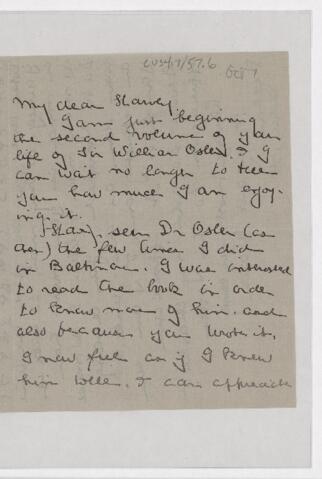 CUS417/57.6
Oct 7
My dear Harvey,
I am just beginning
the second volume of your
life of Sir William Osler, & I
can wait no longer to tell
you how much I am enjoy-
ing it.
Having seen Dr Osler (as
then) the few times I did
in Baltimore, I was interested
to read the book in order
to know more of him, and
also because you wrote it.
I now feel as if I knew
him well, & can appreciate